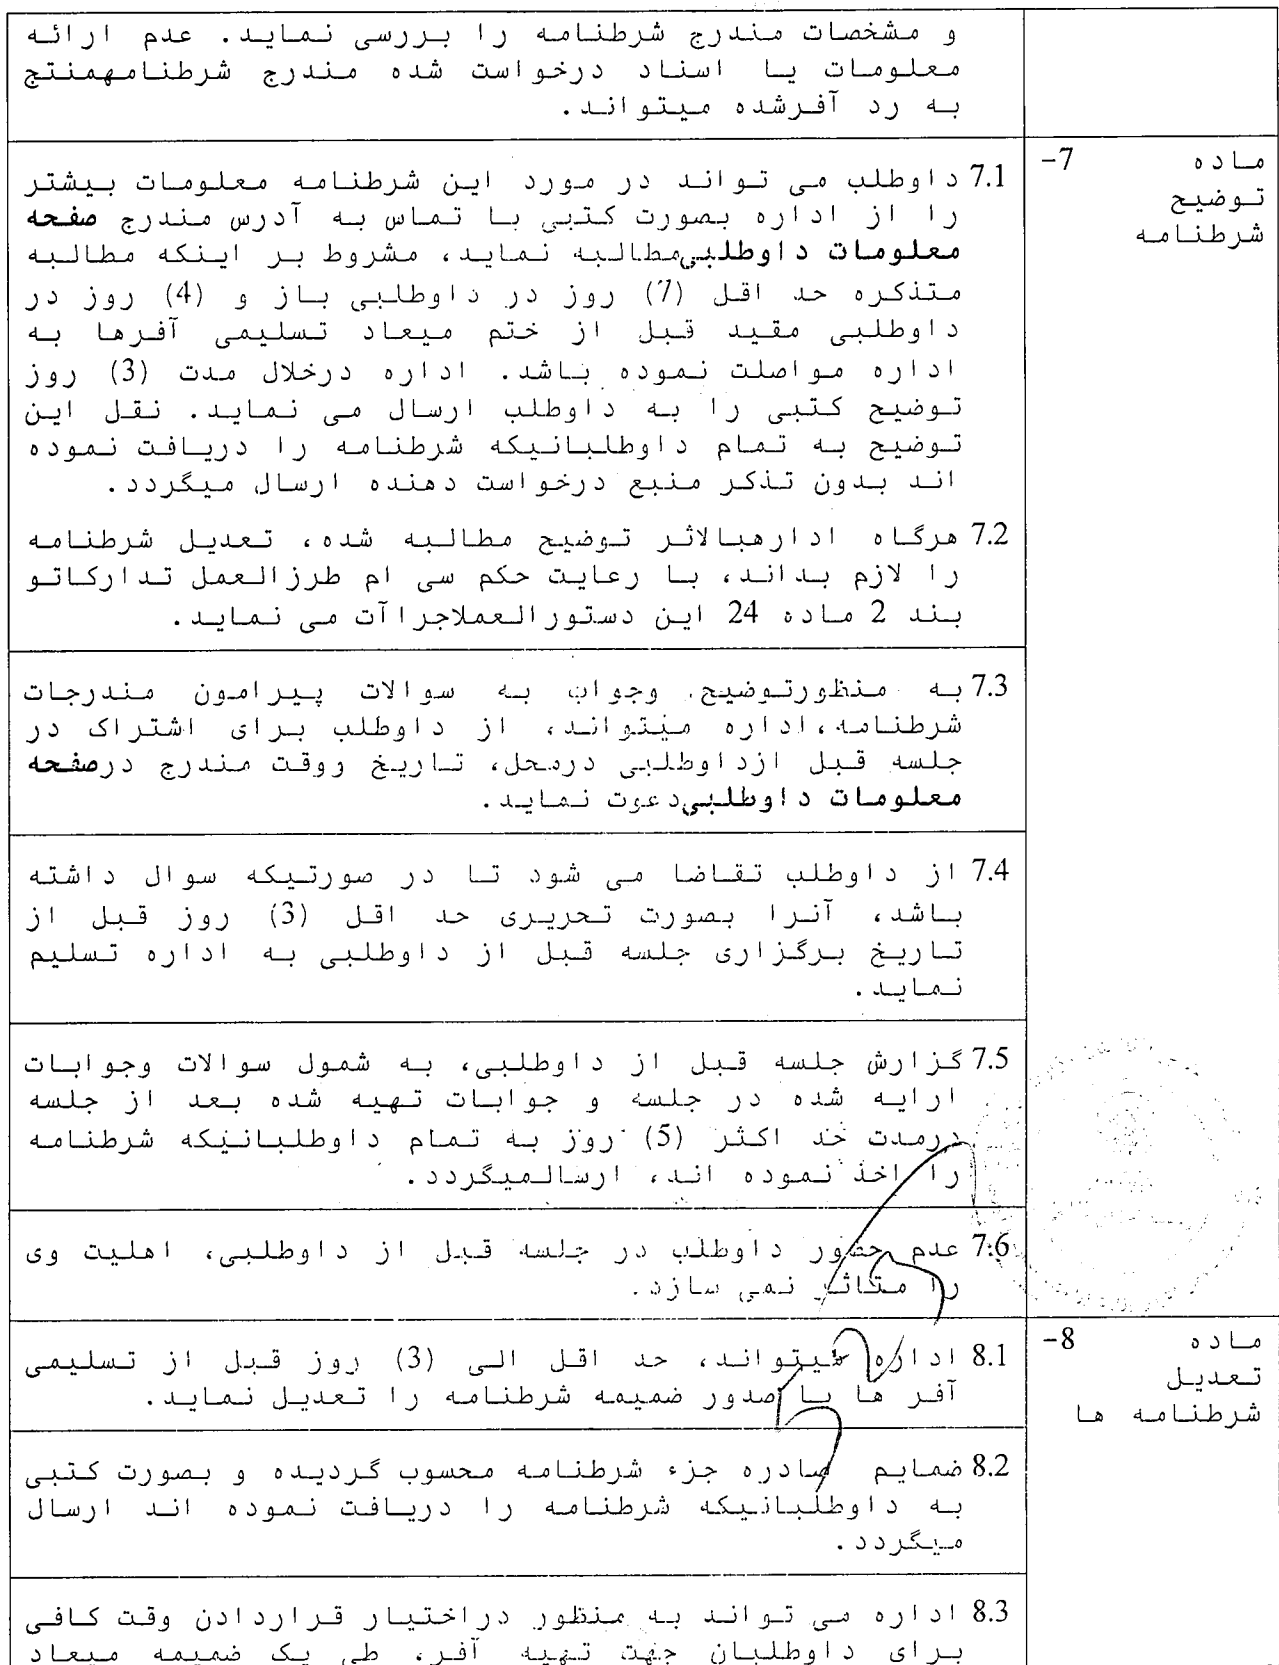 و مشخصات مندرج شرطنامه را بررسی نماید. عدم ارائه
معلومات یا اسناد درخواست شده مندرج شرطنامهمنتج
به رد آفرشده میتواند.
ماده 7-
توضیح
شرطنامه
7.1 داوطلب می تواند در مورد این شرطنامه معلومات بیشتر
را از اداره بصورت کتبی با تماس به آدرس مندرج صفحه
معلومات داوطلبیمطالبه نماید، مشروط بر اینکه مطالبه
متذکره حد اقل (7) روز در داوطلبی باز و (4) روز در
داوطلبی مقید قبل از ختم میعاد تسلیمی آفرها به
اداره مواصلت نموده باشد. اداره درخلال مدت (3) روز
توضیح کتبی را به داوطلب ارسال می نماید. نقل این
توضیح به تمام داوطلبانیکه شرطنامه را دریافت نموده
اند بدون تذکر منبع درخواست دهنده ارسال میگردد.
7.2 هرگاه ادارهبالاثر توضیح مطالبه شده، تعدیل شرطنامه
را لازم بداند، با رعایت حکم سی ام طرزالعمل تدارکاتو
بند 2 ماده 24 این دستورالعملاجراآت می نماید.
7.3 به منظورتوضیح وجواب به سوالات پیرامون مندرجات
شرطنامه،اداره میتواند، از داوطلب برای اشتراک در
جلسه قبل ازداوطلبی درمحل، تاریخ ووقت مندرج درصفحه
معلومات داوطلبیدعوت نماید.
7.4 از داوطلب تقاضا می شود تا در صورتیکه سوال داشته
باشد، آنرا بصورت تحریری حد اقل (3) روز قبل از
تاریخ برگزاری جلسه قبل از داوطلبی به اداره تسلیم
نماید.
7.5 گزارش جلسه قبل از داوطلبی، به شمول سوالات وجوابات
ارایه شده در جلسه و جوابات تهیه شده بعد از جلسه
درمدت حد اکثر (5) روز به تمام داوطلبانیکه شرطنامه
را اخذ نموده اند، ارسالمیگردد.
7.6 عدم حضور داوطلب در جلسه قبل از داوطلبی، اهلیت وی
را متاثر نمی سازد.
ماده 8-
تعدیل
شرطنامه ها
8.1 اداره میتواند، حد اقل الی (3) روز قبل از تسلیمی
آفر ها با صدور ضمیمه شرطنامه را تعدیل نماید.
8.2 ضمایم صادره جزء شرطنامه محسوب گردیده و بصورت کتبی
به داوطلبانیکه شرطنامه را دریافت نموده اند ارسال
میگردد.
8.3 اداره می تواند به منظور دراختیار قراردادن وقت کافی
برای داوطلبان جهت تهیه آفر، طی یک ضمیمه میعاد